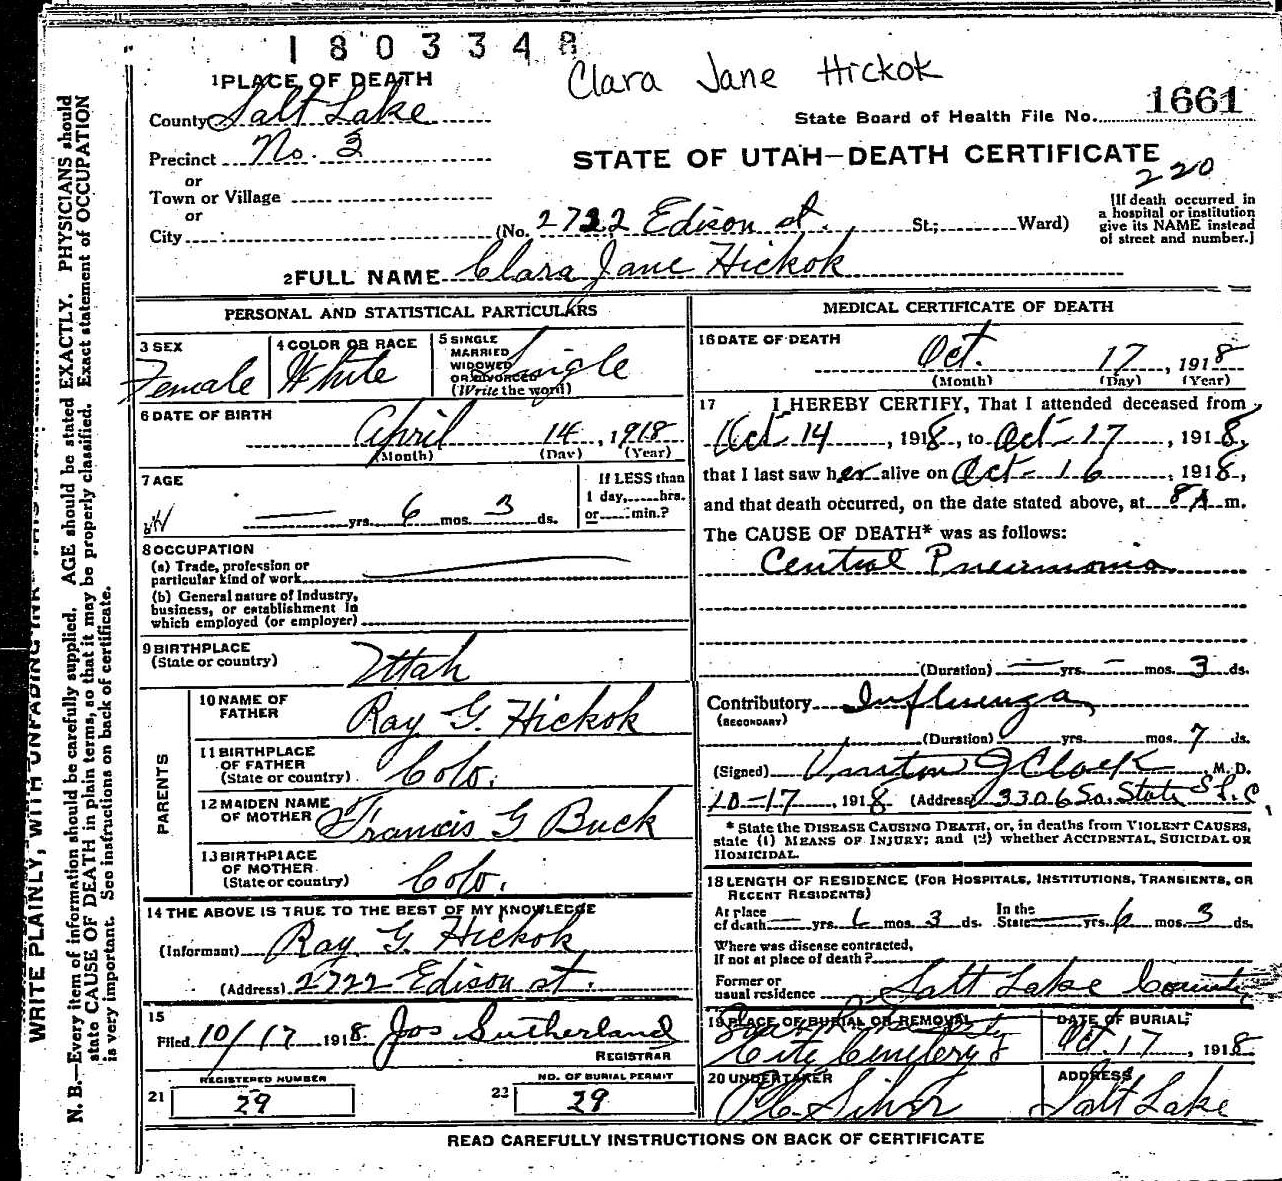 1803348
Clara Jane Hickok
1 PLACE OF DEATH
County Salt Lake
State Board of Health File No. 1661
Precinct No. 3
STATE OF UTAH—DEATH CERTIFICATE
220
or
Town or Village
or
City (No. 2722 Edison st. St.; Ward)
[If death occurred in
a hospital or institution
give its NAME instead
of street and number.]
2 FULL NAME Clara Jane Hickok
PERSONAL AND STATISTICAL PARTICULARS
3 SEX
Female
4 COLOR OR RACE
White
5 SINGLE
MARRIED
WIDOWED
OR DIVORCED
(Write the word)
Single
6 DATE OF BIRTH
April 14, 1918
(Month) (Day) (Year)
7 AGE
yrs. 6 mos. 3 ds.
If LESS than
1 day, hrs.
or min.?
8 OCCUPATION
(a) Trade, profession or
particular kind of work
(b) General nature of Industry,
business, or establishment in
which employed (or employer)
9 BIRTHPLACE
(State or country) Uttah
PARENTS
10 NAME OF
FATHER Ray G. Hickok
11 BIRTHPLACE
OF FATHER
(State or country) Colo.
12 MAIDEN NAME
OF MOTHER Francis G Buck
13 BIRTHPLACE
OF MOTHER
(State or country) Colo.
14 THE ABOVE IS TRUE TO THE BEST OF MY KNOWLEDGE
(Informant) Ray G. Hickok
(Address) 2722 Edison st.
15
Filed 10/17 1918 Jos Sutherland
REGISTRAR
21 REGISTERED NUMBER
29
22 NO. OF BURIAL PERMIT
29
MEDICAL CERTIFICATE OF DEATH
16 DATE OF DEATH
Oct. 17, 1918
(Month) (Day) (Year)
17 I HEREBY CERTIFY, That I attended deceased from
Oct 14, 1918, to Oct-17, 1918,
that I last saw her alive on Oct-16, 1918,
and that death occurred, on the date stated above, at 8 A m.
The CAUSE OF DEATH* was as follows:
Central Pneumonia
(Duration) yrs. mos. 3 ds.
Contributory Influenza
(SECONDARY)
(Duration) yrs. mos. 7 ds.
(Signed) J Clark M. D.
10-17, 1918 (Address) 3306 So. State S L C
* State the DISEASE CAUSING DEATH, or, in deaths from VIOLENT CAUSES,
state (1) MEANS OF INJURY; and (2) whether ACCIDENTAL, SUICIDAL OR
HOMICIDAL.
18 LENGTH OF RESIDENCE (FOR HOSPITALS, INSTITUTIONS, TRANSIENTS, OR
RECENT RESIDENTS)
At place
of death yrs. 6 mos. 3 ds. In the
State yrs. 6 mos. 3 ds.
Where was disease contracted,
If not at place of death?
Former or
usual residence Salt Lake County
19 PLACE OF BURIAL OR REMOVAL
City Cemetery
DATE OF BURIAL
Oct. 17, 1918
20 UNDERTAKER
ADDRESS
Salt Lake
READ CAREFULLY INSTRUCTIONS ON BACK OF CERTIFICATE
WRITE PLAINLY, WITH UNFADING INK
N. B.—Every item of information should be carefully supplied. AGE should be stated EXACTLY. PHYSICIANS should
state CAUSE OF DEATH in plain terms, so that it may be properly classified. Exact statement of OCCUPATION
is very important. See instructions on back of certificate.